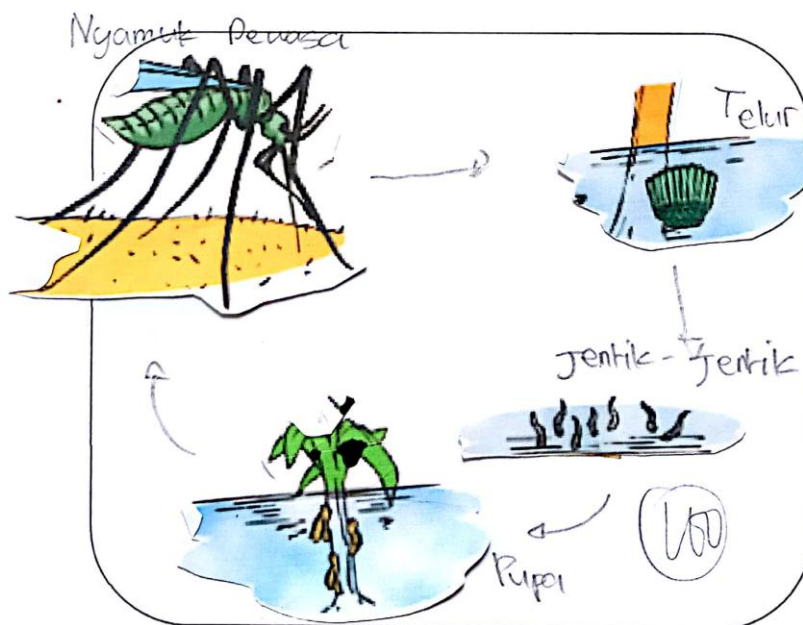 Nyamuk Dewasa
Telur
Jentik - Jentik
Pupa
100